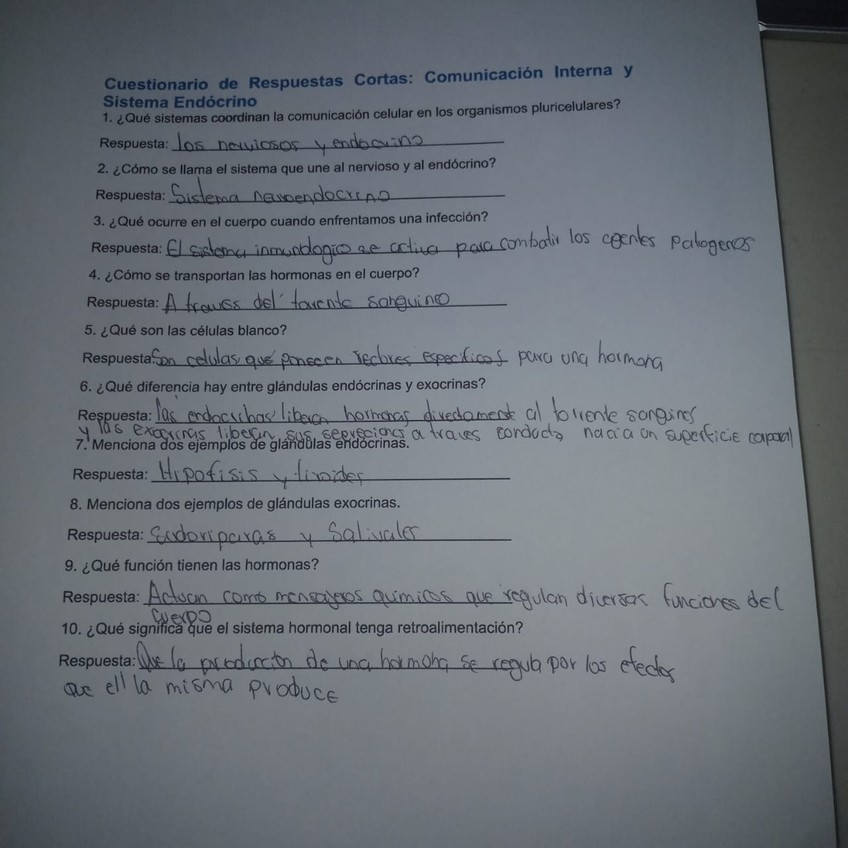 Cuestionario de Respuestas Cortas: Comunicación Interna y
Sistema Endócrino
1. ¿Qué sistemas coordinan la comunicación celular en los organismos pluricelulares?
Respuesta: los nerviosos y endocrino
2. ¿Cómo se llama el sistema que une al nervioso y al endócrino?
Respuesta: Sistema neuroendocrino
3. ¿Qué ocurre en el cuerpo cuando enfrentamos una infección?
Respuesta: El sistema inmunologico se activa para combatir los agentes patogenos
4. ¿Cómo se transportan las hormonas en el cuerpo?
Respuesta: A traves del torrente sanguineo
5. ¿Qué son las células blanco?
Respuesta: Son celulas que especificos para una hormona
6. ¿Qué diferencia hay entre glándulas endócrinas y exocrinas?
Respuesta: las endocrinas liberan hormonas directamente al torrente sanguineo
y las exocrinas liberan sus secreciones a traves conducto hacia un superficie corporal
7. Menciona dos ejemplos de glándulas endócrinas.
Respuesta: Hipofisis y tiroides
8. Menciona dos ejemplos de glándulas exocrinas.
Respuesta: Sudoriparas y Salivales
9. ¿Qué función tienen las hormonas?
Respuesta: Actuan como mensajeros quimicos que regulan diversas funciones del
cuerpo
10. ¿Qué significa que el sistema hormonal tenga retroalimentación?
Respuesta: Que la producción de una hormona se regula por los efectos
que ell la misma produce